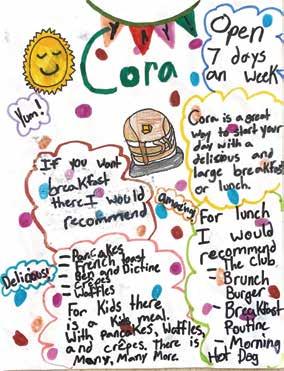 YAY!
Cora
Open
7 days
an week
Yum!
Cora is a great
way to start your
day with a
delisious and
large breakfast
or lunch.
If you want
breakfast
there I would
recommend
Amazing!
Delicous!
- Pancakes
- French toast
- Egg and Bictine
- Crepes
- Waffles
For Kids there
is a Kids meal.
With pancakes, Waffles,
and crepes. There is
Many, Many More.
For lunch
I would
recommend
- The Club
- Brunch
Burger
- Breakfast
Poutine
- Morning
Hot Dog